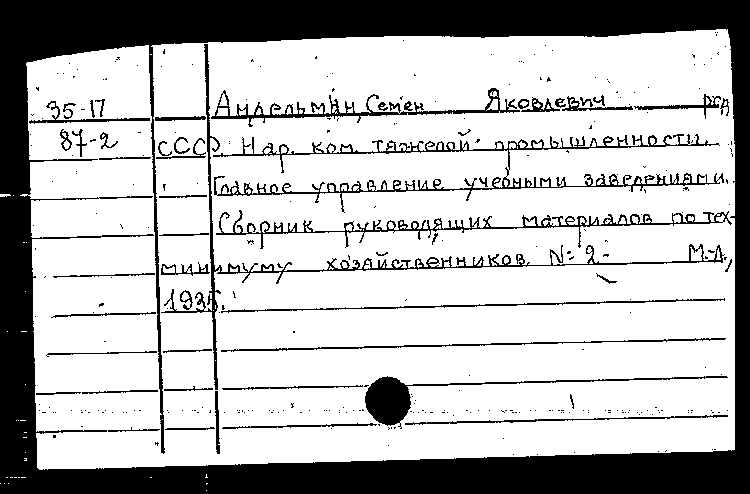 35-17 Андельман, Семен Яковлевич ред
87-2 СССР. Нар. ком. тяжелой промышленности.
Главное управление учебными заведениями.
Сборник руководящих материалов по тех-
минимуму хозяйственников. № 2- М.-Л,
1935.